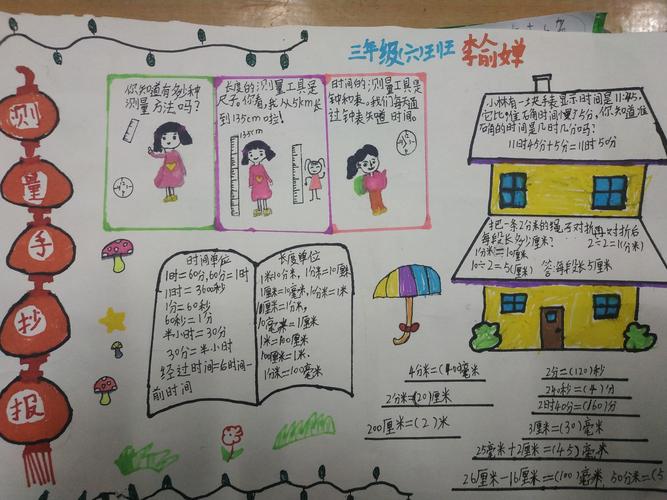 三年级六班班 李俞婵
测量手抄报
你知道有多种
测量方法吗?
长度的测量工具是
尺子,你看,我从5km长
到135cm啦!
135cm
时间的测量工具是
钟和表。我们每天通
过钟表知道时间。
小林有一块手表显示时间是11:45,
它比准确时间慢了5分,你知道准
确的时间是几时几分吗?
11时45分+5分=11时50分
把一条2分米的绳子对折再对折后
每段长多少厘米?
2÷2=1(分米)
1分米=10厘米
10÷2=5(厘米) 答:每段长5厘米
时间单位
1时=60分,60分=1时
1时=3600秒
1分=60秒
60秒=1分
半小时=30分
30分=半小时
经过时间=后时间-
前时间
长度单位
1米=10分米,1分米=10厘米
1厘米=10毫米,10分米=1米
10厘米=1分米,
10毫米=1厘米
1米=100厘米
100厘米=1米.
1分米=100毫米
4分米=(400)毫米
2分米=(20)厘米
200厘米=(2)米
2分=(120)秒
240秒=(4)分
2时40分=(160)分
3厘米=(30)毫米
25毫米+2厘米=(45)毫米
26厘米-16厘米=(100)毫米